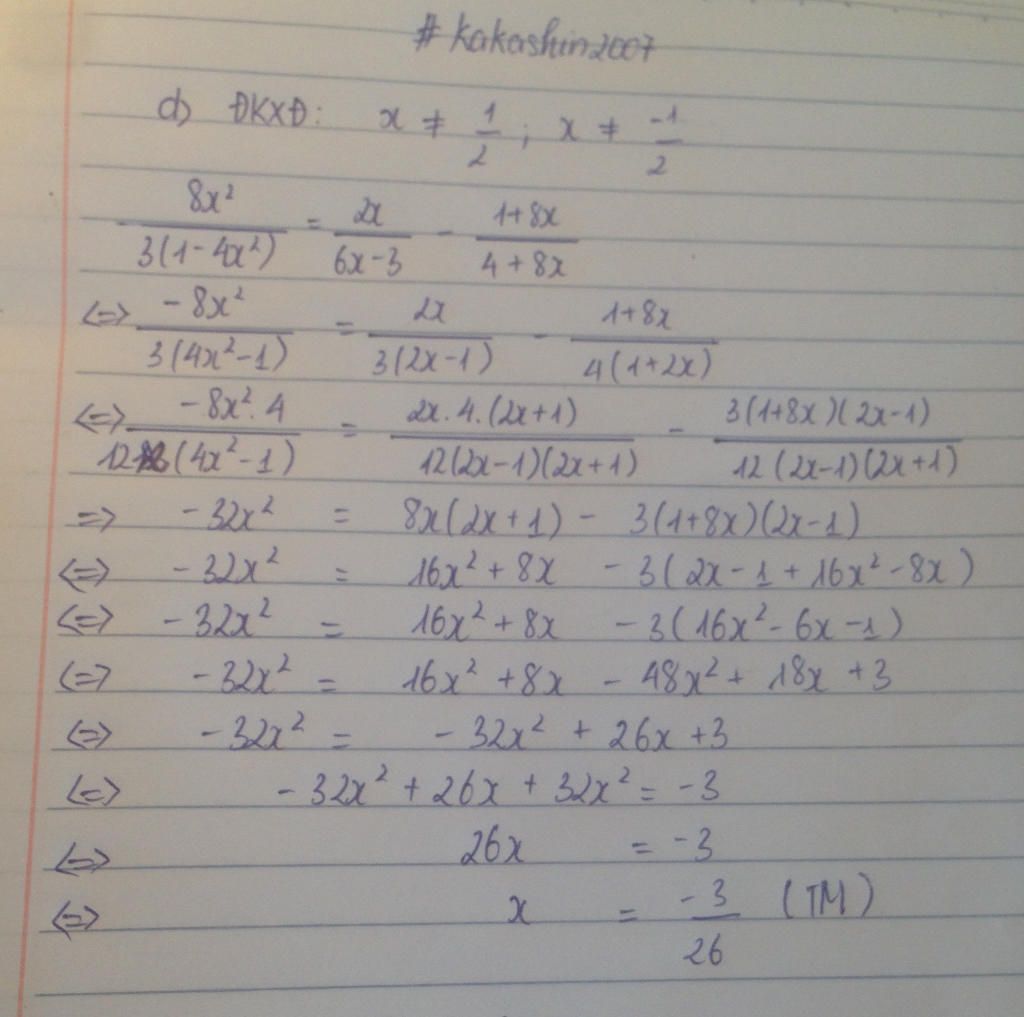 #kakashin2007
d) ĐKXĐ: x ≠ 1/2 ; x ≠ -1/2
8x²/3(1-4x²) = 2x/6x-3 - 1+8x/4+8x
<=> -8x²/3(4x²-1) = 2x/3(2x-1) - 1+8x/4(1+2x)
<=> -8x².4/12(4x²-1) = 2x.4.(2x+1)/12(2x-1)(2x+1) - 3(1+8x)(2x-1)/12(2x-1)(2x+1)
=> -32x² = 8x(2x+1) - 3(1+8x)(2x-1)
<=> -32x² = 16x² + 8x - 3(2x-1+16x²-8x)
<=> -32x² = 16x² + 8x - 3(16x²-6x-1)
<=> -32x² = 16x² + 8x - 48x² + 18x + 3
<=> -32x² = -32x² + 26x + 3
<=> -32x² + 26x + 32x² = -3
<=> 26x = -3
<=> x = -3/26 (TM)